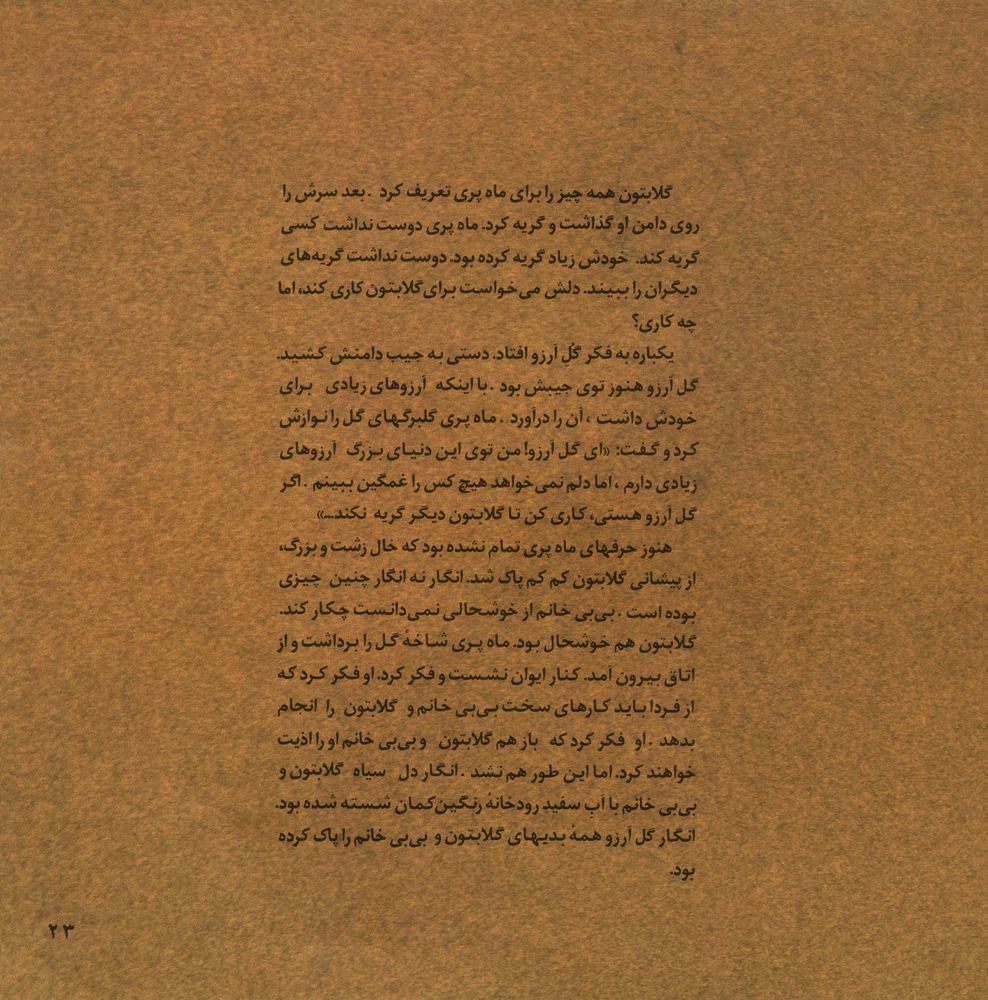 گلابتون همه چیز را برای ماه پری تعریف کرد . بعد سرش را
روی دامن او گذاشت و گریه کرد. ماه پری دوست نداشت کسی
گریه کند. خودش زیاد گریه کرده بود. دوست نداشت گریه‌های
دیگران را ببیند. دلش می‌خواست برای گلابتون کاری کند، اما
چه کاری؟
یکباره به فکر گُلِ آرزو افتاد. دستی به جیب دامنش کشید.
گل آرزو هنوز توی جیبش بود . با اینکه آرزوهای زیادی برای
خودش داشت ، آن را درآورد . ماه پری گلبرگهای گل را نوازش
کرد و گفت: «ای گل آرزو! من توی این دنیای بزرگ آرزوهای
زیادی دارم ، اما دلم نمی‌خواهد هیچ کس را غمگین ببینم . اگر
گل آرزو هستی، کاری کن تا گلابتون دیگر گریه نکند...»
هنوز حرفهای ماه پری تمام نشده بود که خال زشت و بزرگ،
از پیشانی گلابتون کم کم پاک شد. انگار نه انگار چنین چیزی
بوده است . بی‌بی خانم از خوشحالی نمی‌دانست چکار کند.
گلابتون هم خوشحال بود. ماه پری شاخهٔ گل را برداشت و از
اتاق بیرون آمد. کنار ایوان نشست و فکر کرد. او فکر کرد که
از فردا باید کارهای سخت بی‌بی خانم و گلابتون را انجام
بدهد . او فکر کرد که باز هم گلابتون و بی‌بی خانم او را اذیت
خواهند کرد. اما این طور هم نشد . انگار دل سیاه گلابتون و
بی‌بی خانم با آبِ سفیدِ رودخانهٔ رنگین‌کمان شسته شده بود.
انگار گل آرزو همهٔ بدیهای گلابتون و بی‌بی خانم را پاک کرده
بود.
۲۳